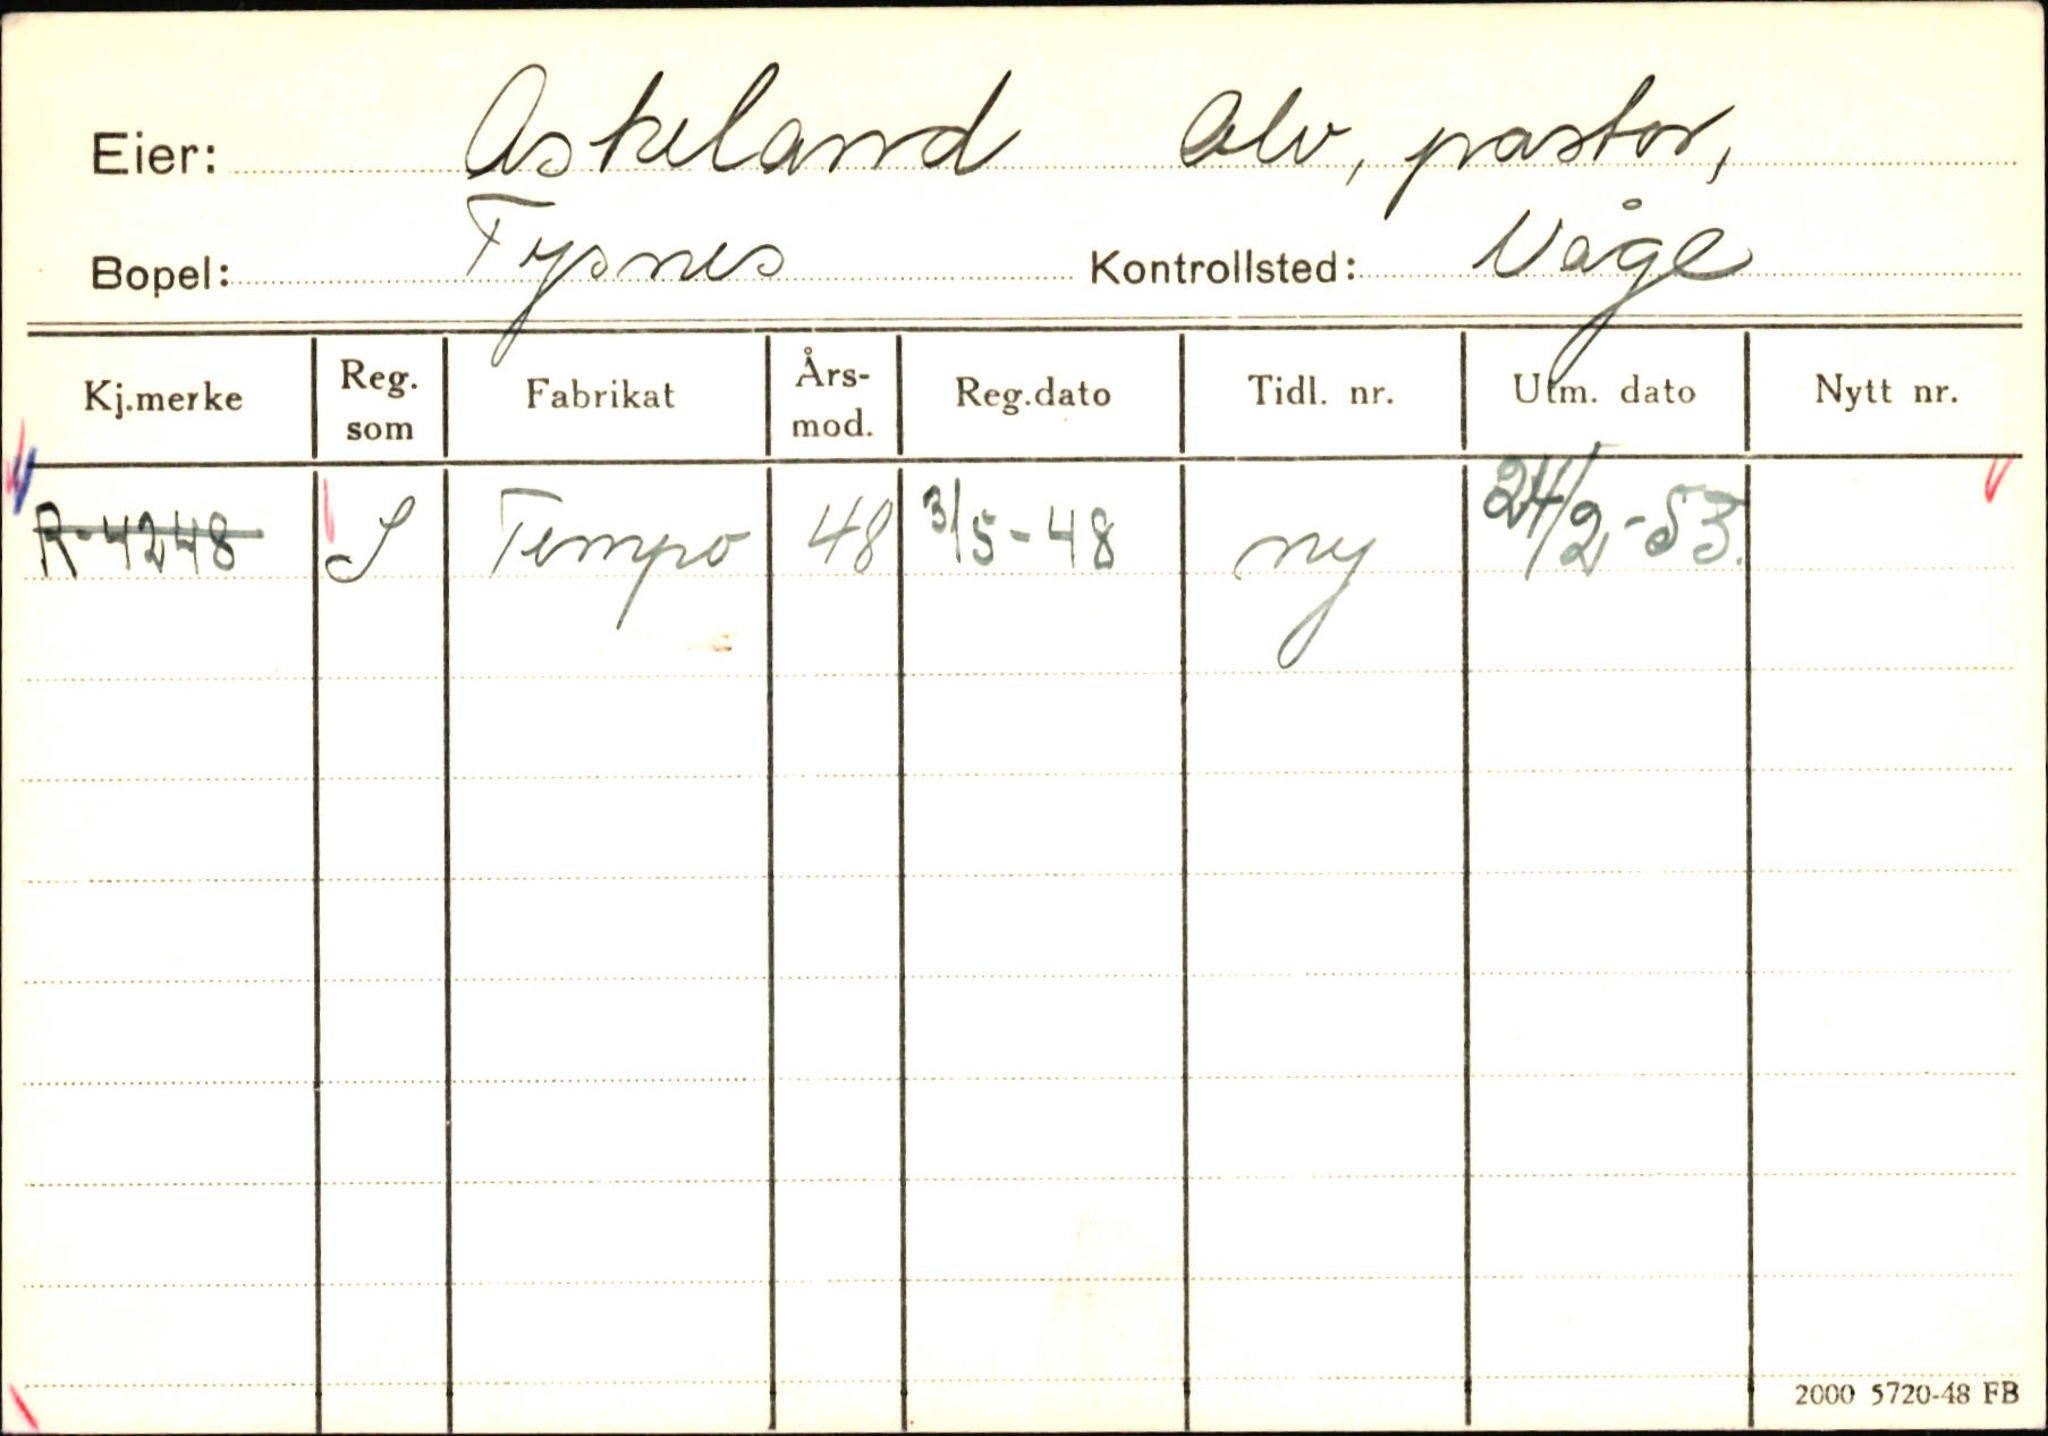 Eier: Askeland Alv, pastor,
Bopel: Tysnes Kontrollsted: Våge
Kj.merke Reg. som Fabrikat Års-mod. Reg.dato Tidl. nr. Utm. dato Nytt nr.
R-4248 S Tempo 48 3/5-48 ny 24/2-53.
2000 5720-48 FB